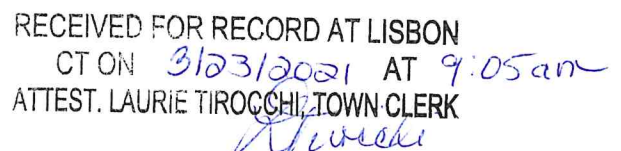 RECEIVED FOR RECORD AT LISBON
CT ON 3/23/2021 AT 9:05am
ATTEST. LAURIE TIROCCHI, TOWN CLERK